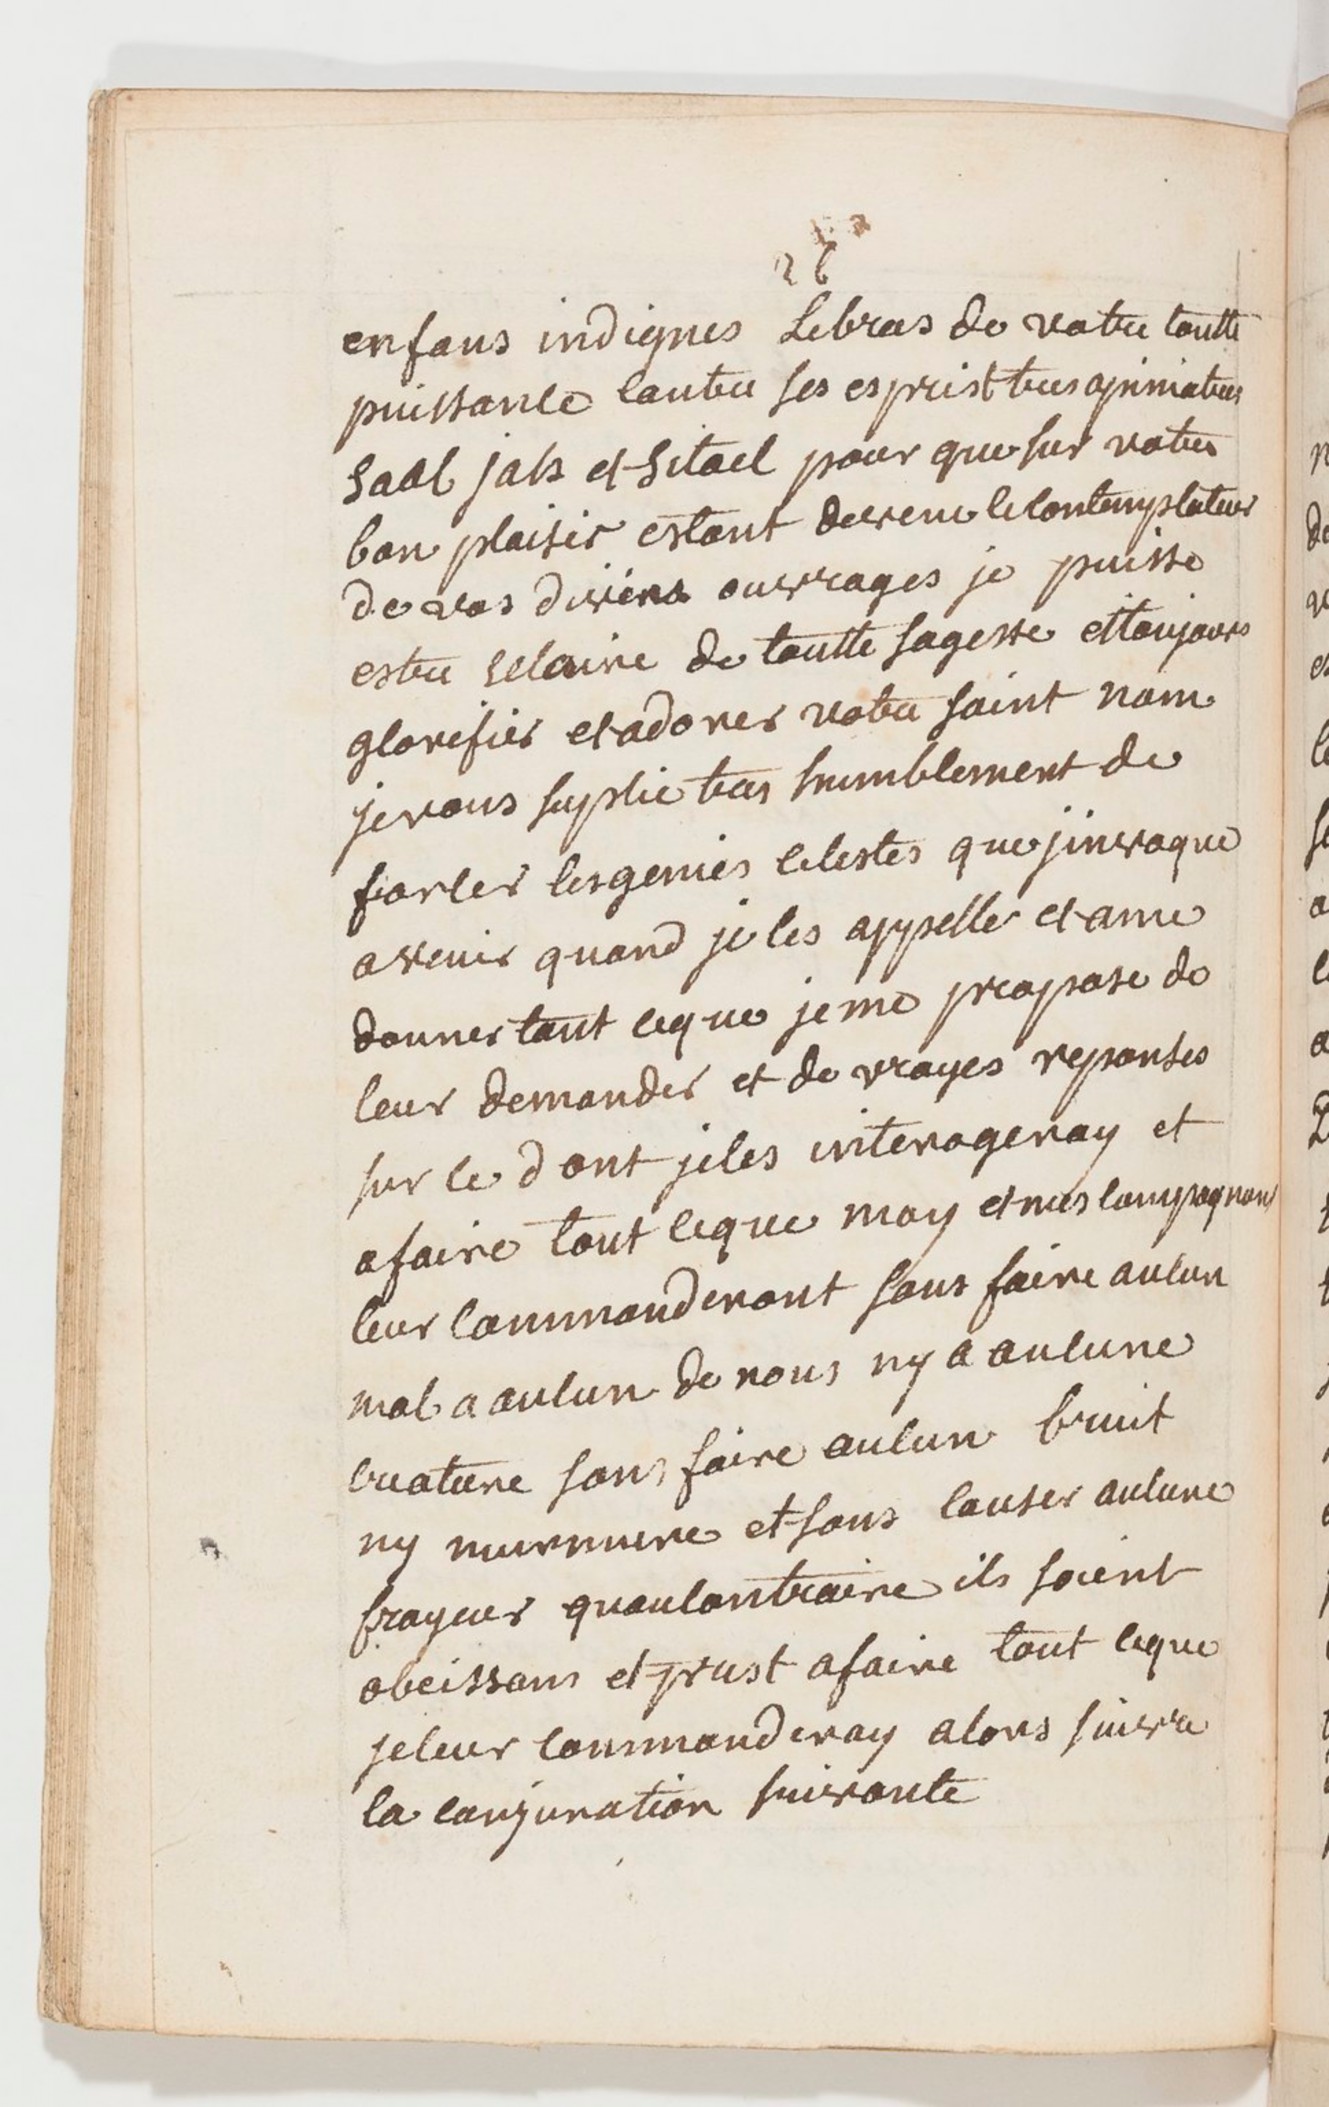 26
enfans indignes Le bras de votre toutte
puissance contre ses esprist tres opiniatres
saal jals et sitael pour que sur votre
bon plaisir estant devenu le contemplateur
de vos divins ouvrages je puisse
estre eclaire de toutte sagesse et toujours
glorifier et adorer votre saint nom
je vous suplie tres humblement de
forcer les genies celestes que jinvoque
a venir quand je les appelle et a me
donner tout ce que je me propose de
leur demander et de vrayes reponses
sur ce dont je les interogeray et
a faire tout ce que moy et mes compagnons
leur commanderont sans faire aucun
mal a aucun de nous ny a aucune
creature sans faire aucun bruit
ny murmure et sans causer aucune
frayeur quau contraire ils soient
obeissans et prest a faire tout ce que
je leur commanderay alors suivra
la conjuration suivante